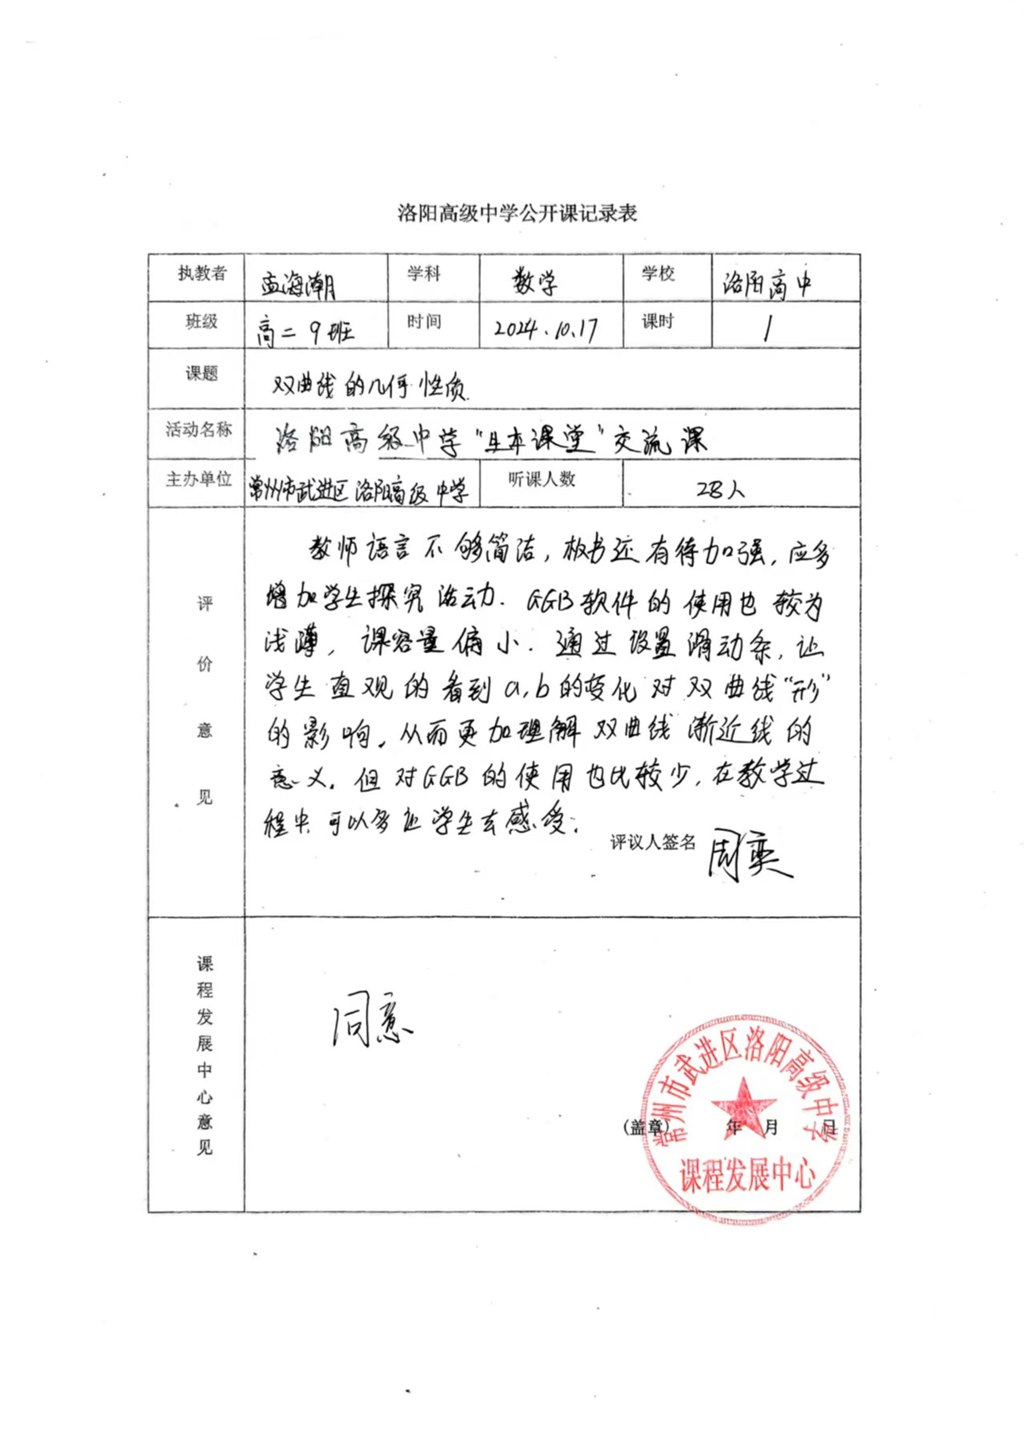 洛阳高级中学公开课记录表
执教者 孟海潮 学科 数学 学校 洛阳高中
班级 高二9班 时间 2024.10.17 课时 1
课题 双曲线的几何性质
活动名称 洛阳高级中学“生本课堂”交流课
主办单位 常州市武进区洛阳高级中学 听课人数 28人
评价意见
教师语言不够简洁，板书还有待加强，应多
增加学生探究活动. GGB软件的使用也较为
浅薄，课容量偏小. 通过设置滑动条，让
学生直观的看到a,b的变化对双曲线“形”
的影响，从而更加理解双曲线渐近线的
意义. 但对GGB的使用也比较少，在教学过
程中可以多让学生去感受.
评议人签名 周奕
课程发展中心意见
同意
(盖章) 年 月 日
常州市武进区洛阳高级中学
课程发展中心